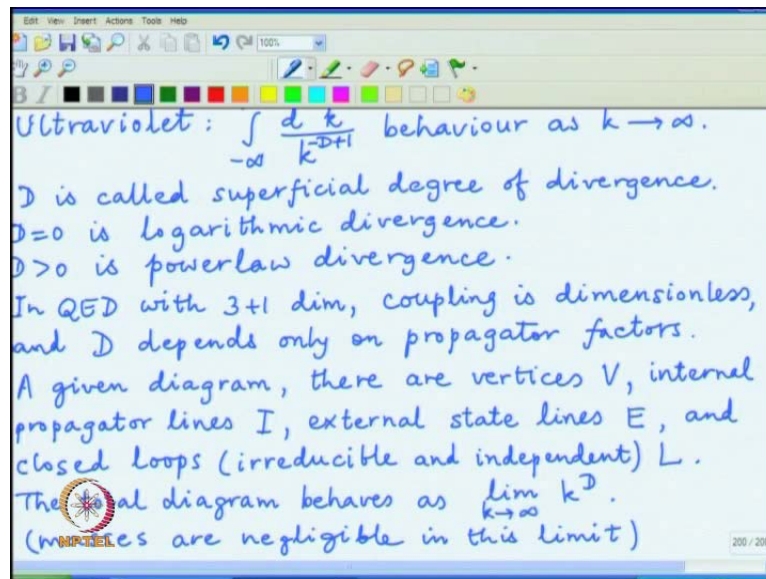 Edit View Insert Actions Tools Help
100%
Ultraviolet: ∫_{-∞} dk / k^{-D+1} behaviour as k → ∞.
D is called superficial degree of divergence.
D=0 is logarithmic divergence.
D>0 is powerlaw divergence.
In QED with 3+1 dim, coupling is dimensionless,
and D depends only on propagator factors.
A given diagram, there are vertices V, internal
propagator lines I, external state lines E, and
closed loops (irreducible and independent) L.
The diagram behaves as lim_{k→∞} k^D.
( are negligible in this limit)
NPTEL
200 / 20